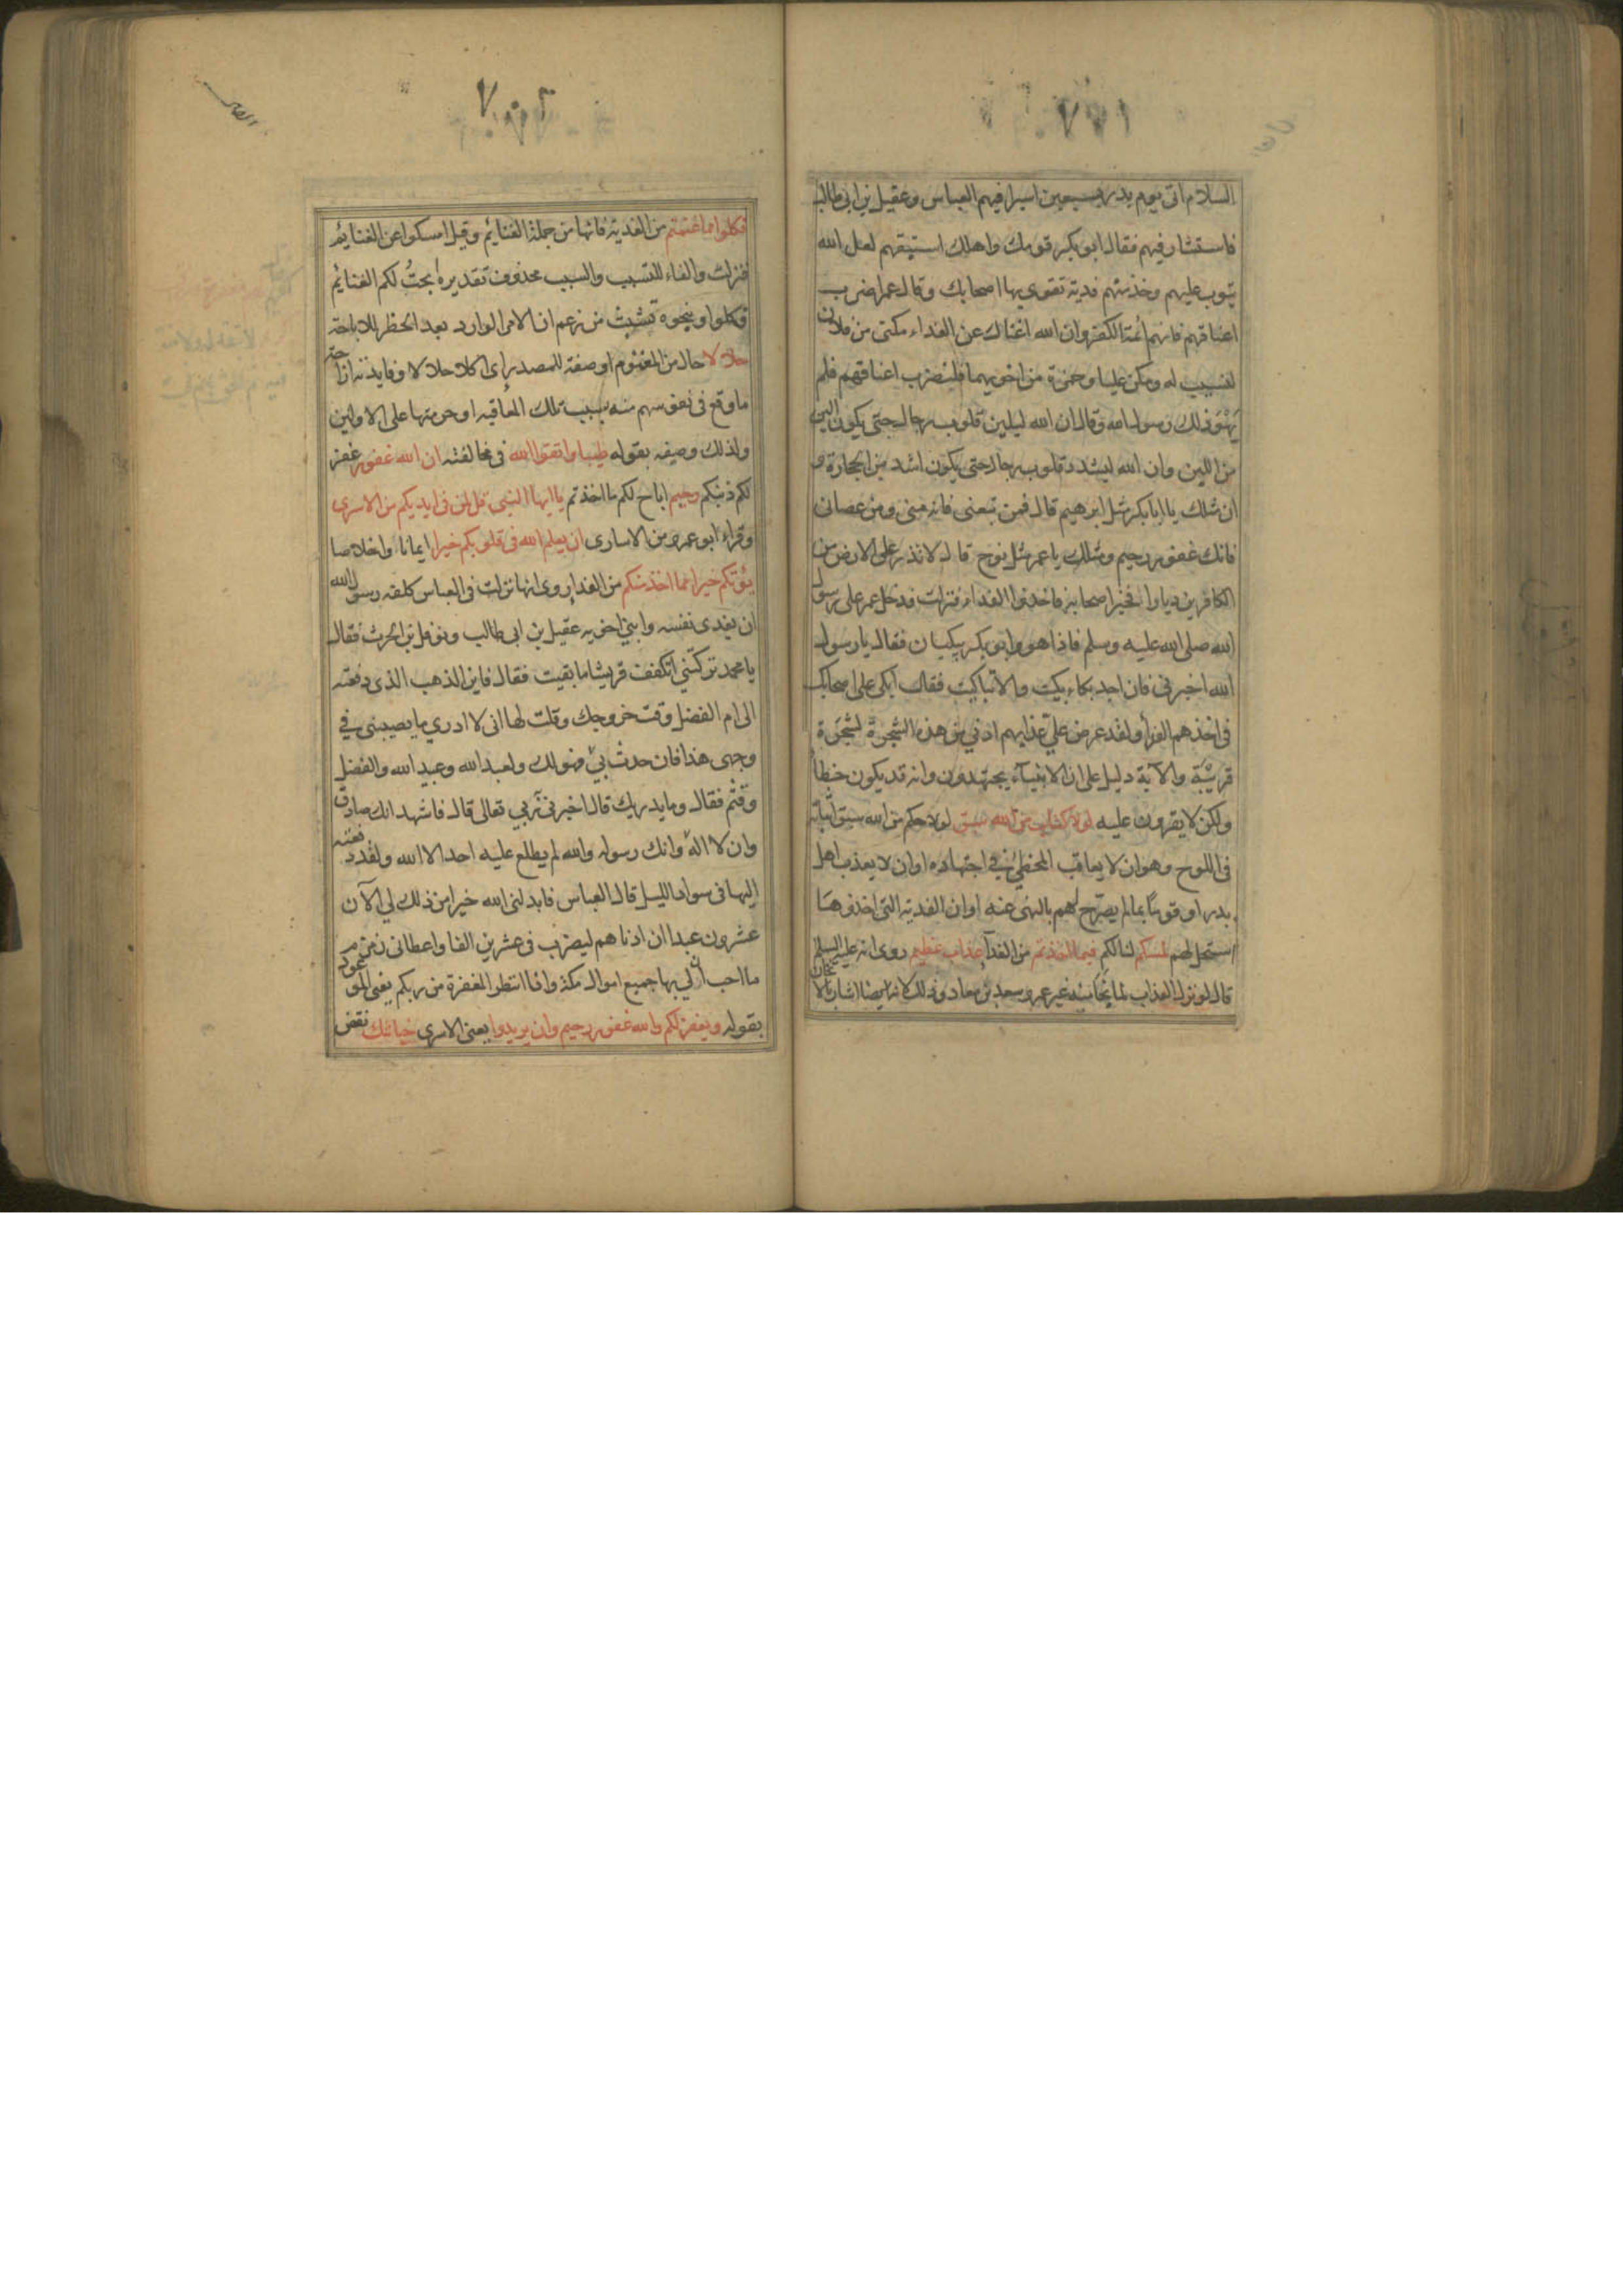 السلام اتى يوم بدر بسبعين اسيرا فيهم العباس وعقيل بن ابى طالب
فاستشار فيهم فقال ابو بكر قومك واهلك استبقهم لعل الله
يتوب عليهم وخذ منهم فدية تقوى بها اصحابك وقال عمر اضرب
اعناقهم فانهم ائمة الكفر وان الله اغناك عن الفداء مكنى من فلان
لنسيب له ومكن عليا وحمزة من اخويهما فلنضرب اعناقهم فلم
يهو ذلك رسول الله وقال ان الله ليلين قلوب رجال حتى يكون الين
من اللين وان الله ليشدد قلوب رجال حتى يكون اشد من الحجارة و
ان مثلك يا ابا بكر مثل ابرهيم قال فمن تبعنى فانه منى ومن عصانى
فانك غفور رحيم ومثلك يا عمر مثل نوح قال لا تذر على الارض من
الكافرين ديارا فخير اصحابه فاخذوا الفداء فنزلت فدخل عمر على رسول
الله صلى الله عليه وسلم فاذا هو وابو بكر يبكيان فقال يا رسول
الله اخبرنى فان اجد بكاء بكيت والا تباكيت فقال ابكى على اصحابك
فى اخذهم الفدأ ولقد عرض علي عذابهم ادنى من هذه الشجرة لشجرة
قريبة والآية دليل على ان الانبيآء يجتهدون وانه قد يكون خطأ
ولكن لا يقرون عليه لولا كتاب من الله سبق لولا حكم من الله سبق اثباته
فى اللوح وهو ان لا يعاقب المخطئ فى اجتهاده او ان لا يعذب اهل
بدر او قومًا بما لم يصرّح لهم بالنهى عنه او ان الفدية التى اخذوها
استحل لهم لمسكم لنالكم فيما اخذتم من الفدآء عذاب عظيم روى انه عليه السلم
قال لو نزل العذاب لما نجا منه غير عمر وسعد بن معاذ وذلك لانه ايضا اشار بالاثخان
٧٠٢
فكلوا مما غنمتم من الفدية فانها من جملة الغنايم وقيل امسكوا عن الغنايم
فنزلت والفاء للتسبب والسبب محذوف تقديره ابحت لكم الغنايم
فكلوا وبنحوه تشبث من زعم ان الامر الوارد بعد الحظر للاباحة
حلالا حال من المغنوم او صفة للمصدر اى اكلا حلالا وفايدته ازاحة
ما وقع فى نفوسهم منه بسبب تلك المعاقبة او حرمتها على الاولين
ولذلك وصفه بقوله طيبا واتقوا الله فى مخالفته ان الله غفور غفر
لكم ذنبكم رحيم اباح لكم ما اخذتم يا ايها النبى قل لمن فى ايديكم من الاسرى
وقراء ابو عمرو من الاسارى ان يعلم الله فى قلوبكم خيرا ايمانا واخلاصا
يؤتكم خيرا مما اخذ منكم من الفداء روى انها نزلت فى العباس كلفه رسول الله
ان يفدى نفسه وابنى اخويه عقيل بن ابى طالب ونوفل بن الحرث فقال
يا محمد تركتني اتكفف قريشا ما بقيت فقال فاين الذهب الذى دفعته
الى ام الفضل وقت خروجك وقلت لها انى لا ادري ما يصيبنى في
وجهى هذا فان حدث بي فهو لك ولعبد الله وعبيد الله والفضل
وقثم فقال وما يدريك قال اخبرنى ربي تعالى قال فاشهد انك صادق
وان لا اله وانك رسوله والله لم يطلع عليه احد الا الله ولقد دفعته
إليها فى سواد الليل قال العباس فابدلنى الله خيرا من ذلك لي الآن
عشرون عبدا ان ادناهم ليضرب فى عشرين الفا واعطانى زمزم
ما احب ان لي بها جميع اموال مكة وانا انتظر المغفرة من ربكم يعنى الموعود
بقوله ويغفر لكم والله غفور رحيم وان يريدوا يعنى الاسرى خيانتك نقض